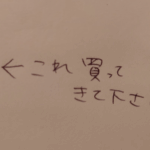 ← これ 買って
きて下さ